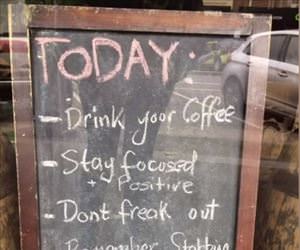 TODAY.
- Drink your Coffee
- Stay focused
+ Positive
- Dont freak out